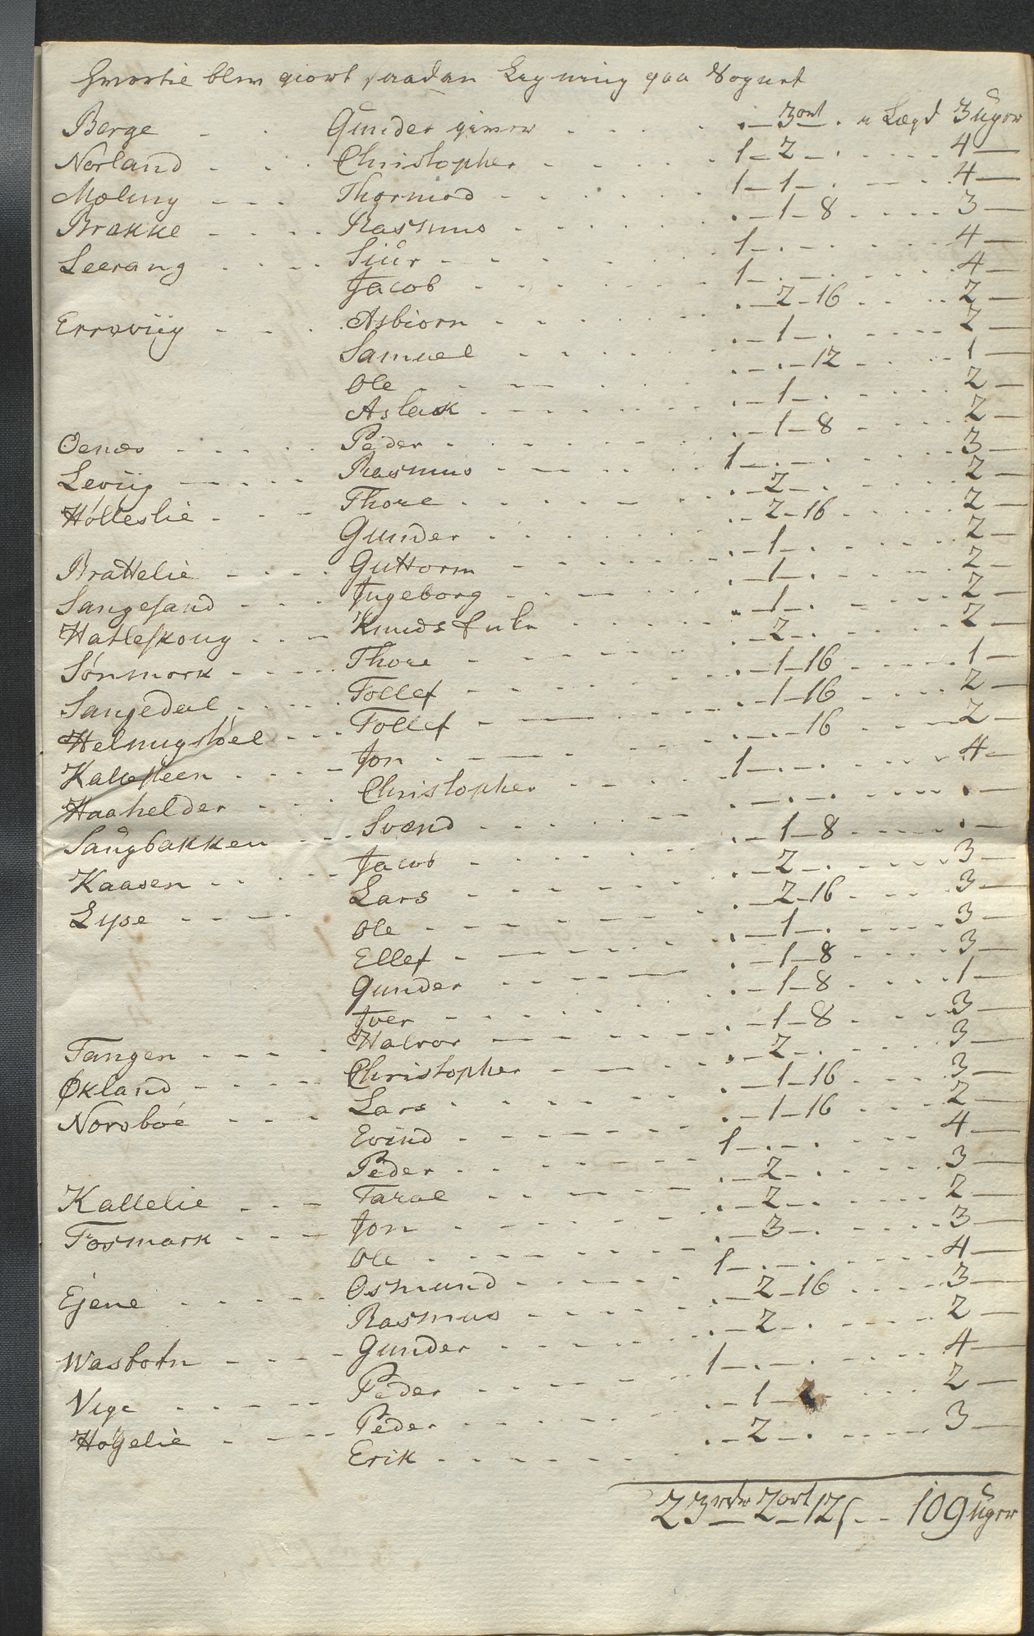 Hvortie blev giort saadan Ligning paa Sognet
Berge - - Gunder giver . - 3 ort - . a Lægd 3 Uger
Norland - - Christopher - - - 1 - 2 - . - - - 4 -
Mæling - - - Thormod - - - 1 - 1 - . - - - 4 -
Brække - - - - Rasmus - - - . - 1 - 8 - - - 3 -
Leerang - - - - Siur - - - 1 - . - . - - - 4 -
Jacob - - - 1 - . - . - - - 4 -
Errswiig - - - Asbiorn - - - . - 2 - 16 - - - 2 -
Samuel - - - . - 1 - . - - - 2 -
Ole - - - . - . - 12 - - - 1 -
Aslak - - - . - 1 - . - - - 2 -
Oenæs - - - Peder - - - . - 1 - 8 - - - 2 -
Leviig - - - Rasmus - - - 1 - . - . - - - 3 -
Holleslie - - - Thore - - - . - 2 - . - - - 2 -
Gunder - - - . - 2 - 16 - - - 2 -
Brattelie - - - Guttorm - - - . - 1 - . - - - 2 -
Sangesand - - - Ingeborg - - - . - 1 - . - - - 2 -
Hatleskoug - - - Knuds Enke - - - . - 1 - . - - - 2 -
Sønmork - - - Thore - - - . - 2 - . - - - 2 -
Sangedal - - - Tollef - - - . - 1 - 16 - - - 1 -
Helmugstøel - - - Tollef - - - . - 1 - 16 - - - 2 -
Kallesteen - - - Jon - - - . - . - 16 - - - 2 -
Haahelder - - - Christopher - - - 1 - . - . - - - 4 -
Sangbakken - - - Svend - - - . - . - . - - - . -
Kaasen - - - Jacob - - - . - 1 - 8 - - - . -
Lyse - - - Lars - - - . - 2 - . - - - 3 -
Ole - - - . - 2 - 16 - - - 3 -
Ellef - - - . - 1 - . - - - 3 -
Gunder - - - . - 1 - 8 - - - 3 -
Iver - - - . - 1 - 8 - - - 1 -
Tangen - - - Halvor - - - . - 1 - 8 - - - 3 -
Økland - - - Christopher - - - . - 2 - . - - - 3 -
Norsboe - - - Lars - - - . - 1 - 16 - - - 3 -
Evind - - - . - 1 - 16 - - - 2 -
Peder - - - 1 - . - . - - - 4 -
Kallelie - - - Taral - - - . - 2 - . - - - 3 -
Fosmark - - - Jon - - - . - 2 - . - - - 2 -
Ole - - - . - 3 - . - - - 3 -
Ejene - - - Osmund - - - 1 - . - . - - - 4 -
Rasmus - - - . - 2 - 16 - - - 3 -
Wasbotn - - - Gunder - - - . - 2 - . - - - 2 -
Vige - - - Peder - - - 1 - . - . - - - 4 -
Høgelie - - - Peder - - - . - 1 - - - - 2 -
Erik - - - . - 2 - . - - - 3 -
23 rdr 2 ort 12 s - - 109 Uger